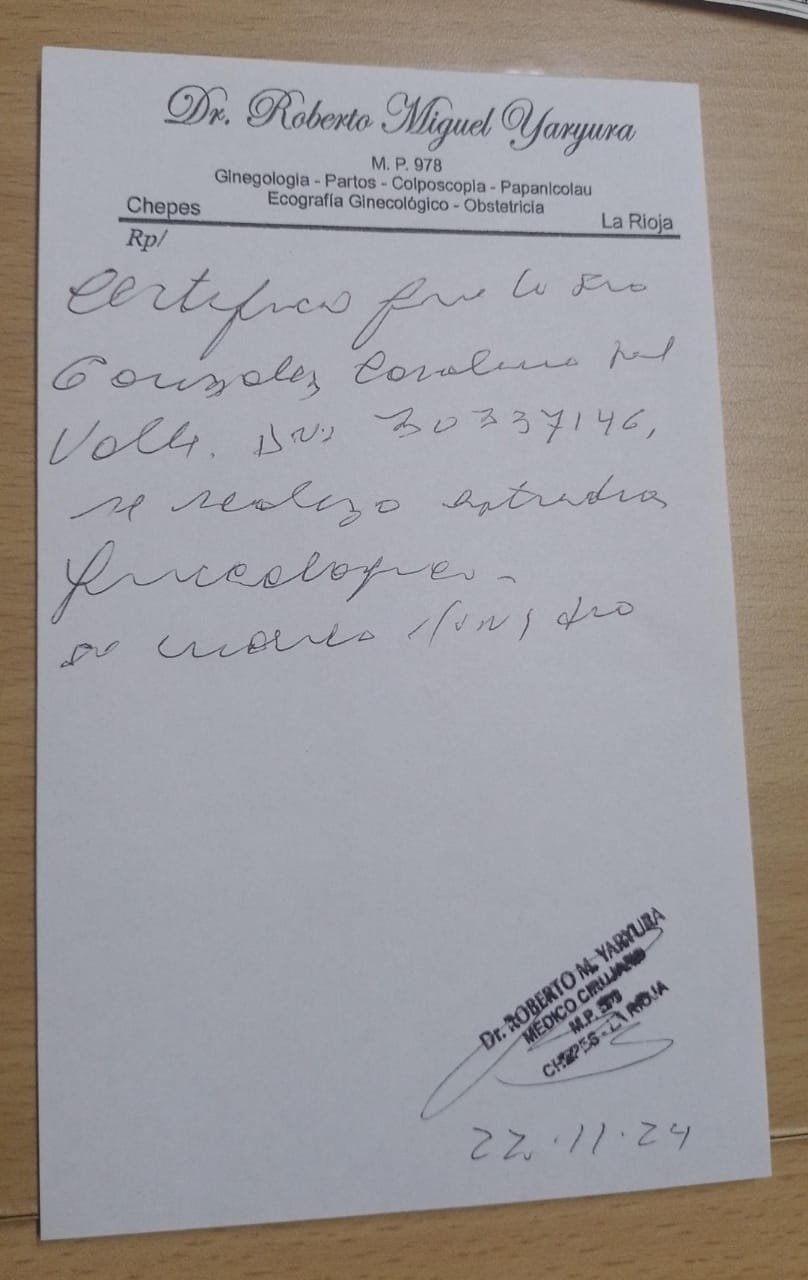 Dr. Roberto Miguel Yaryura
M. P. 978
Ginegologia - Partos - Colposcopia - Papanicolau
Ecografía Ginecológico - Obstetricia
Chepes
La Rioja
Rp/
Certifico que la Sra
Gonzalez Carolina del
Valle. DNI 30337146,
se realizo estudios
ginecologicos -
Dr. ROBERTO M. YARYURA
MEDICO CIRUJANO
M.P. 978
CHEPES - LA RIOJA
22.11.24